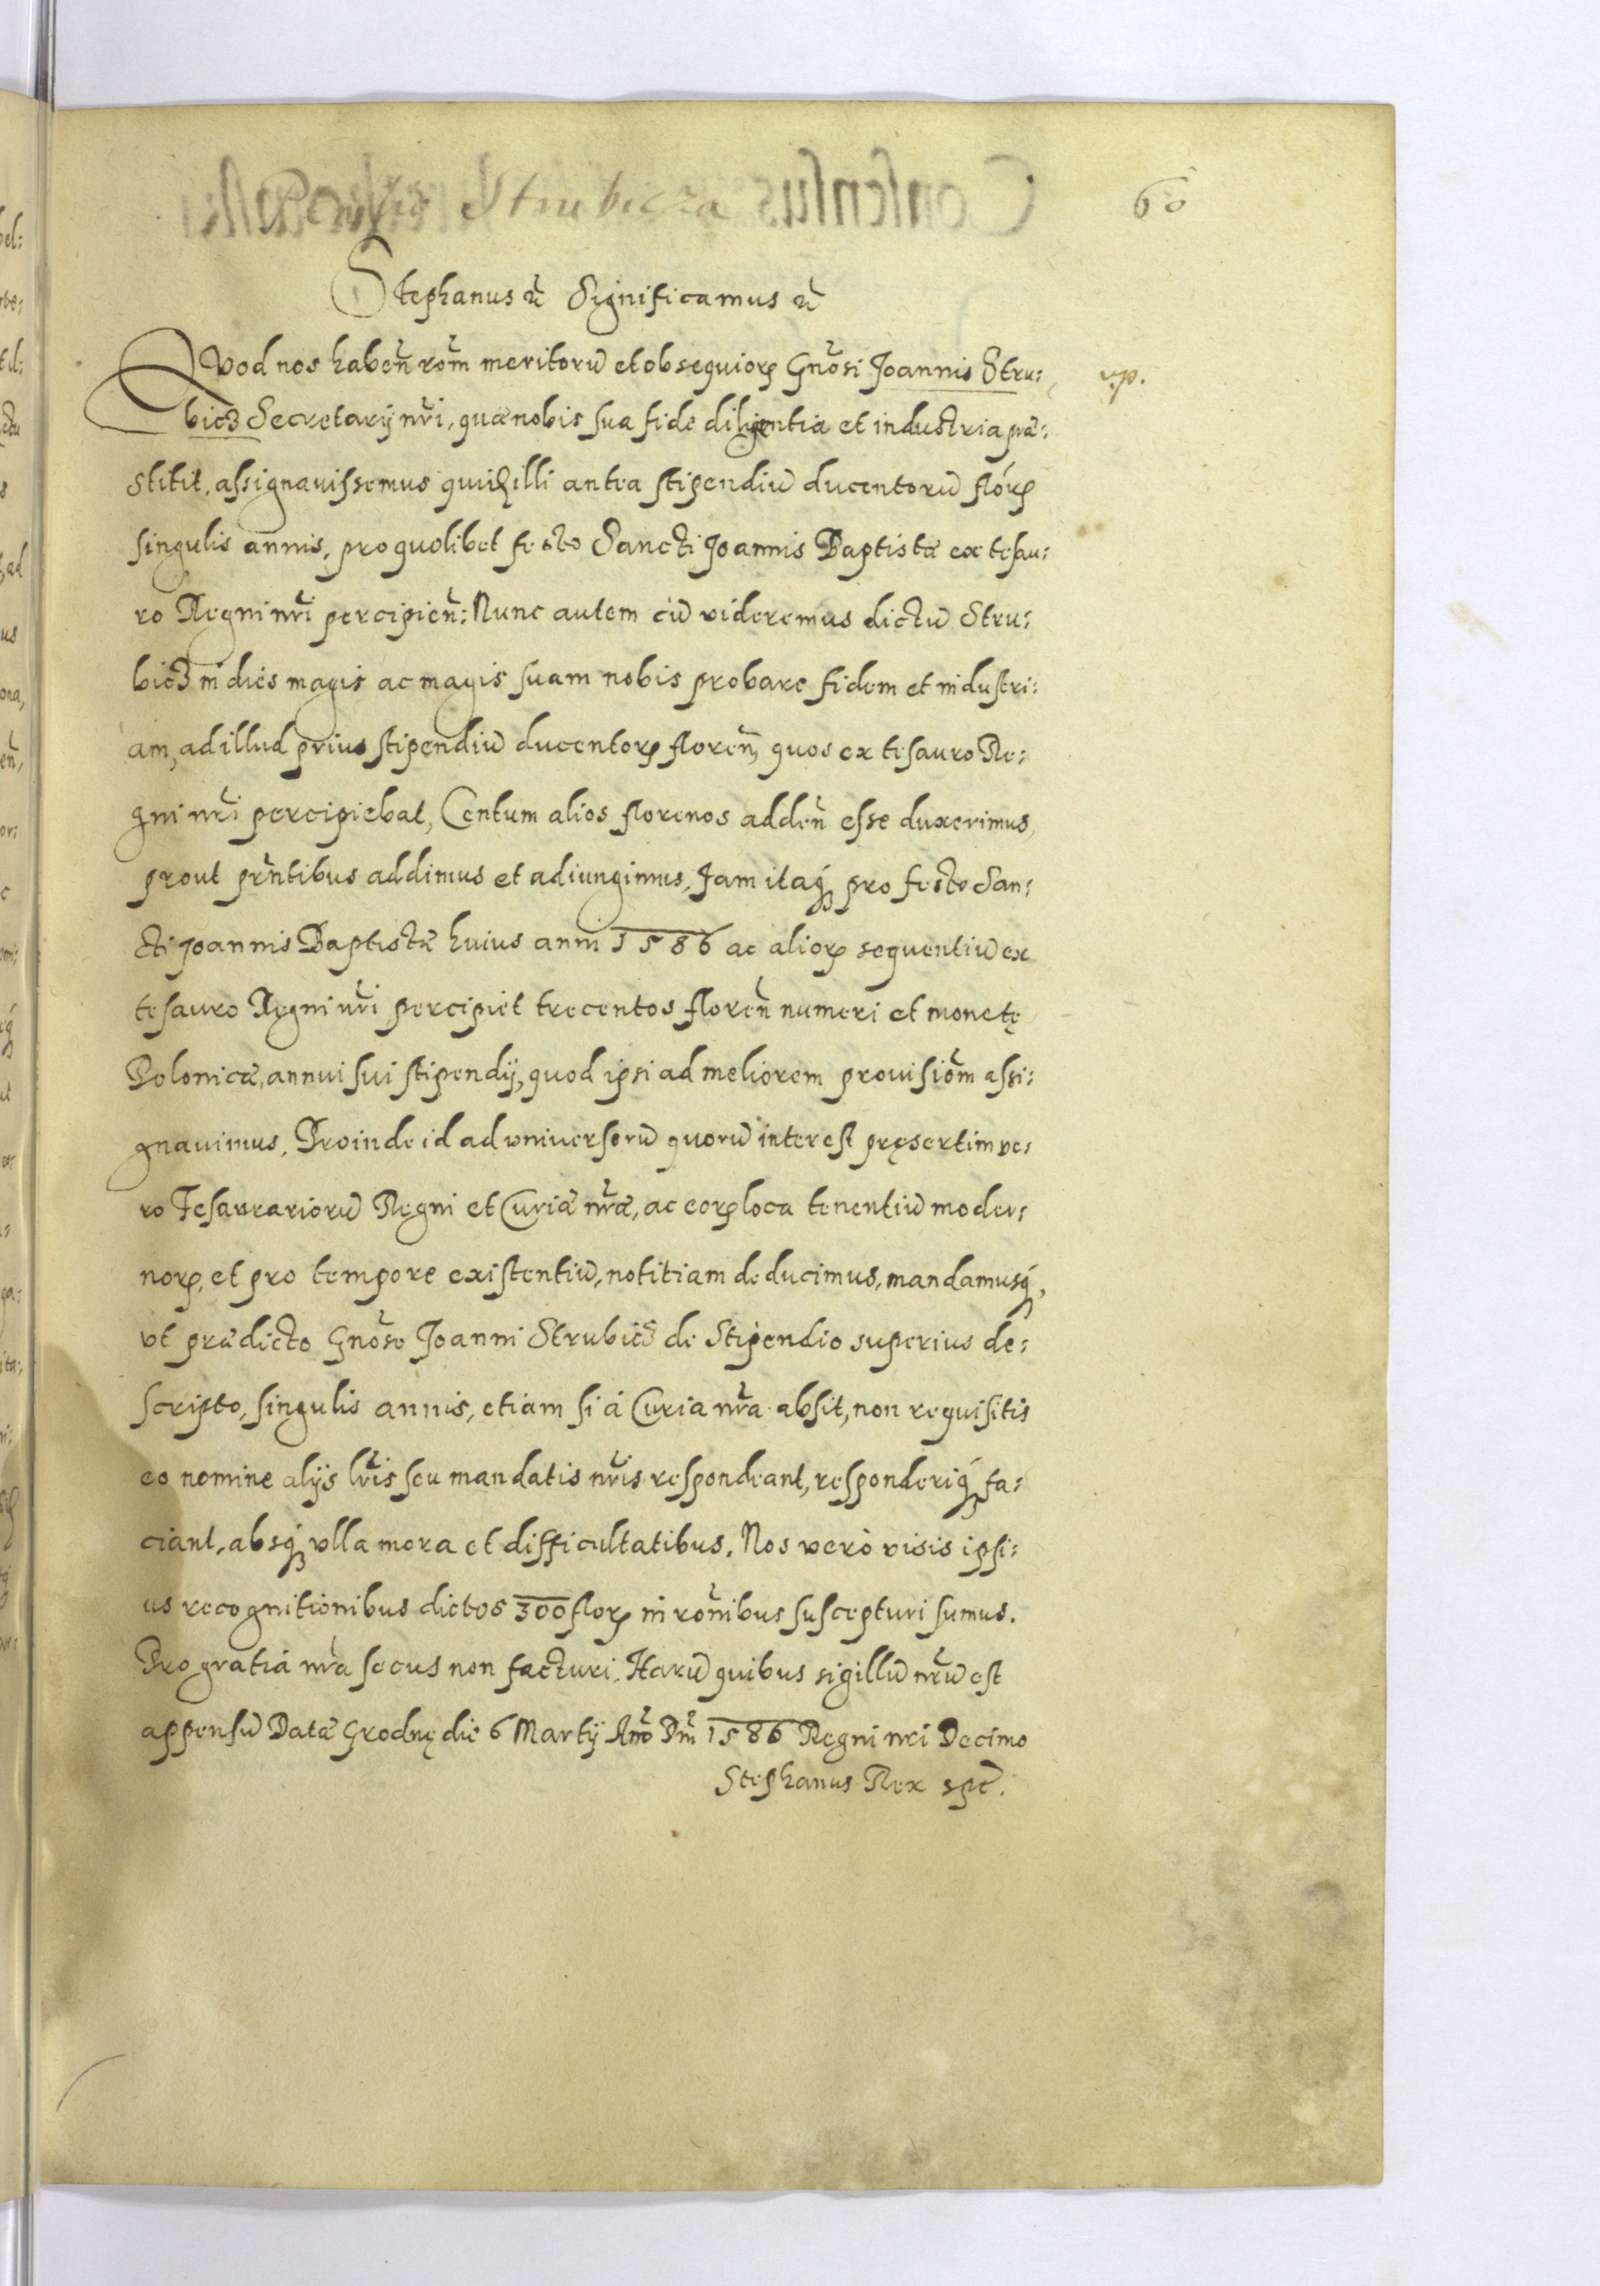 60
Strubicza
Stephanus etc̃ Significamus etc̃
Quod nos habeñ rõm meritorũ et obsequiorꝝ Gnõsi Joannis Stru:
vp.
bicz Secretarij nrĩ, quæ nobis sua fide diligentia et industria præ:
stitit, assignavissemus quidẽ illi antea stipendiũ ducentorũ flórꝝ
singulis annis, pro quolibet festo Sancti Joannis Baptistæ ex tesau:
ro Regni nrĩ percipieñ: Nunc autem cũ videremus dictũ Stru:
bicz in dies magis ac magis suam nobis probare fidem et industri:
am, ad illud prius stipendiũ ducentorꝝ floreñ, quos ex tesauro Re:
gni nrĩ percipiebat, Centum alios florenos addeñ esse duxerimus,
prout prñtibus addimus et adiungimus, Jam itaqꝫ pro festo San:
cti Joannis Baptistæ huius anni 1586 ac aliorꝝ sequentiũ ex
tesauro Regni nrĩ percipiet trecentos floreñ numeri et monetę
Polonicæ, annui sui stipendij, quod ipsi ad meliorem provisiõm assi:
gnavimus, Proinde id ad universorũ quorũ interest pręsertim ve:
ro Tesaurariorũ Regni et Curiæ nrã, ac eorꝝ loca tenentiũ moder:
norꝝ, et pro tempore existentiũ, notitiam deducimus, mandamusqꝫ,
vt prædicto Gnõso Joanni Strubicz de Stipendio superius de:
scripto, singulis annis, etiam si á Curia nrã absit, non requisitis
eo nomine alijs lrĩs seu mandatis nrĩs respondeant, responderiqꝫ fa:
ciant, absqꝫ vlla mora et difficultatibus. Nos verò visis ipsi:
us recognitionibus dictos 300 florꝝ in rõnibus suscepturi sumus.
Pro gratiá nrã secus non facturi. Harũ quibus sigillũ nrũ est
appensũ Datæ Grodnę die 6 Martij Anõ Dñi 1586 Regni nri Decimo
Stephanus Rex spt̃.